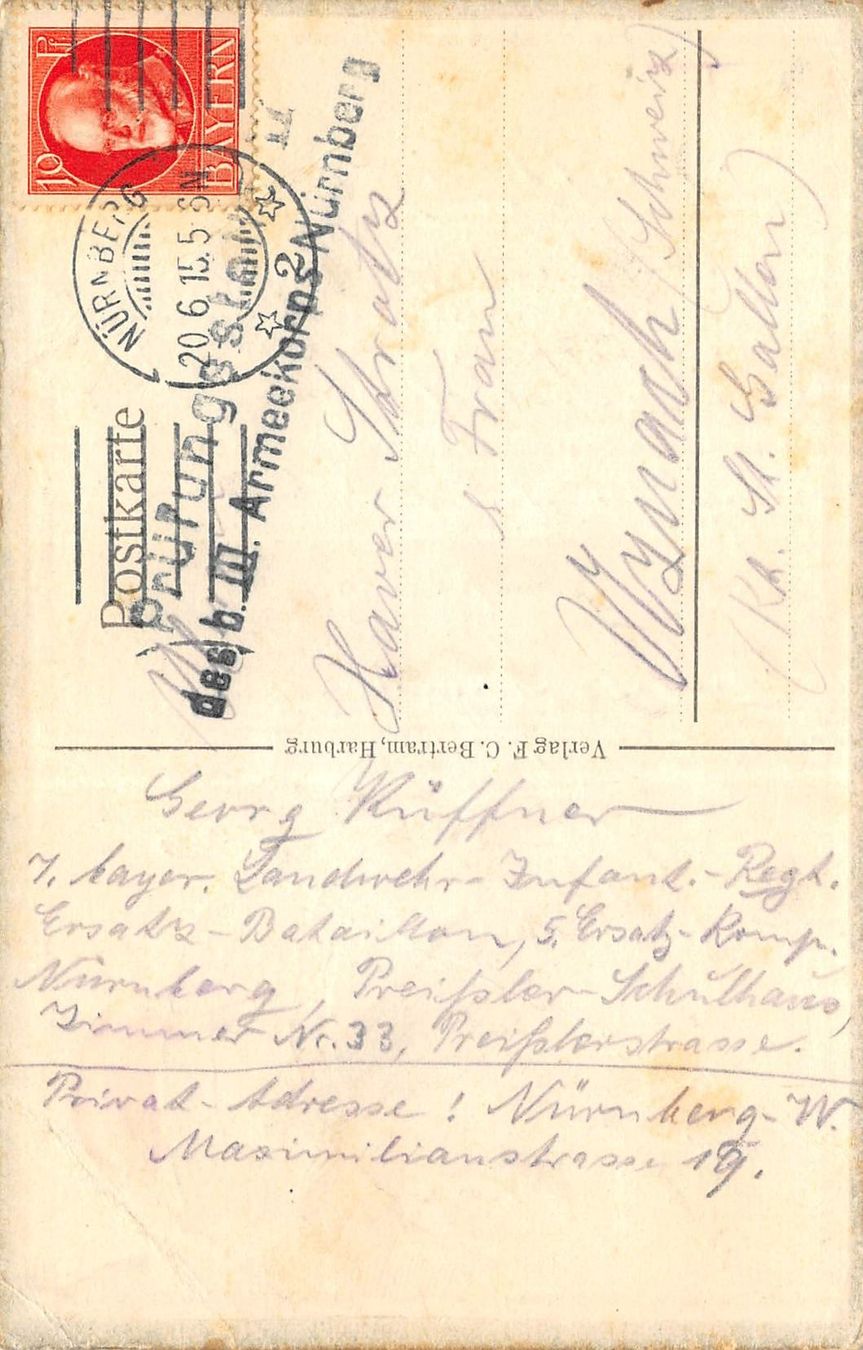 10 Pf
BAYERN
NÜRNBERG
20.6.15.5-6N
2
Postkarte
Prüfungsstelle II
des b. III. Armeekorps Nürnberg
Xaver Stratz
& Frau
Wynach (Schweiz)
(Kt. St. Gallen)
Verlag F. C. Bertram, Harburg
Georg Küffner
7. bayer. Landwehr-Infant.-Regt.
Ersatz-Bataillon, 5. Ersatz-Komp.
Nürnberg, Preißler-Schulhaus,
Zimmer Nr. 33, Preißlerstrasse.
Privat-Adresse! Nürnberg-W.
Maximilianstrasse 19.